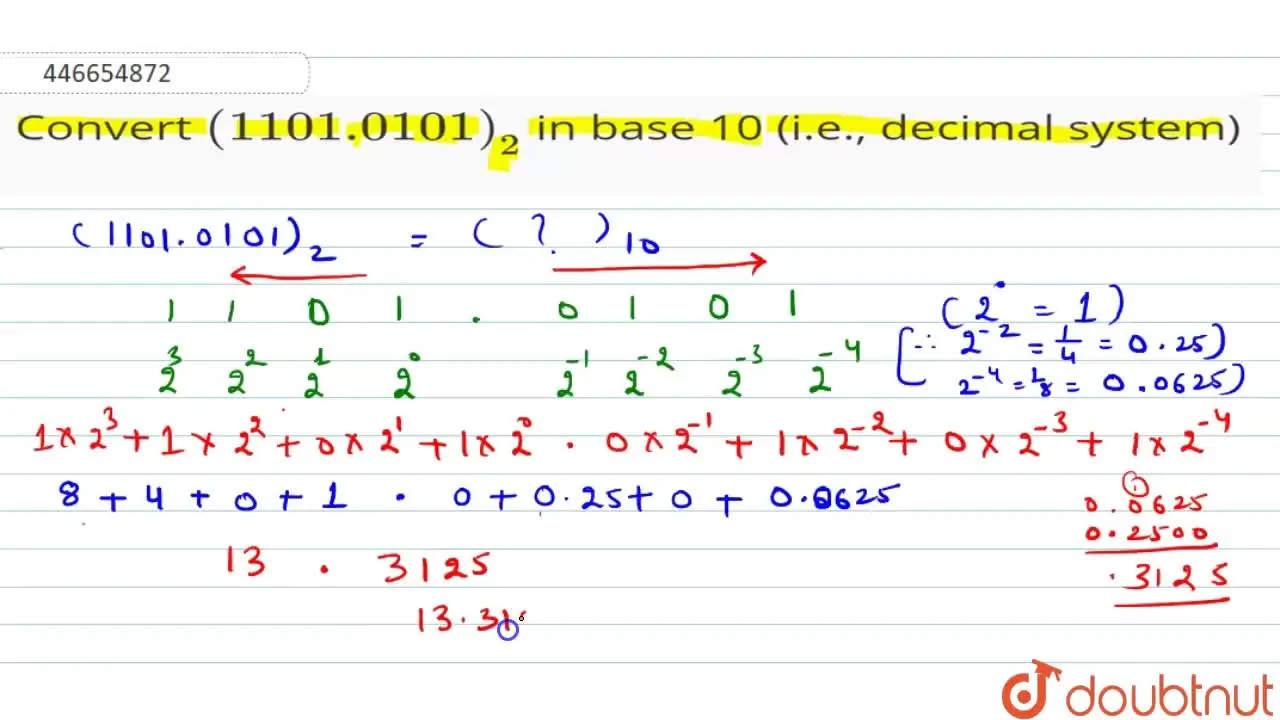 446654872
Convert (1101.0101)₂ in base 10 (i.e., decimal system)
(1101.0101)₂ = ( ? )₁₀
1 1 0 1 . 0 1 0 1
2³ 2² 2¹ 2⁰ 2⁻¹ 2⁻² 2⁻³ 2⁻⁴
(2⁰ = 1)
[∵ 2⁻² = 1/4 = 0.25)
2⁻⁴ = 1/8 = 0.0625)
1×2³ + 1×2² + 0×2¹ + 1×2⁰ . 0×2⁻¹ + 1×2⁻² + 0×2⁻³ + 1×2⁻⁴
8 + 4 + 0 + 1 . 0 + 0.25 + 0 + 0.0625
1
0.0625
0.2500
.3125
13 . 3125
13.31
doubtnut